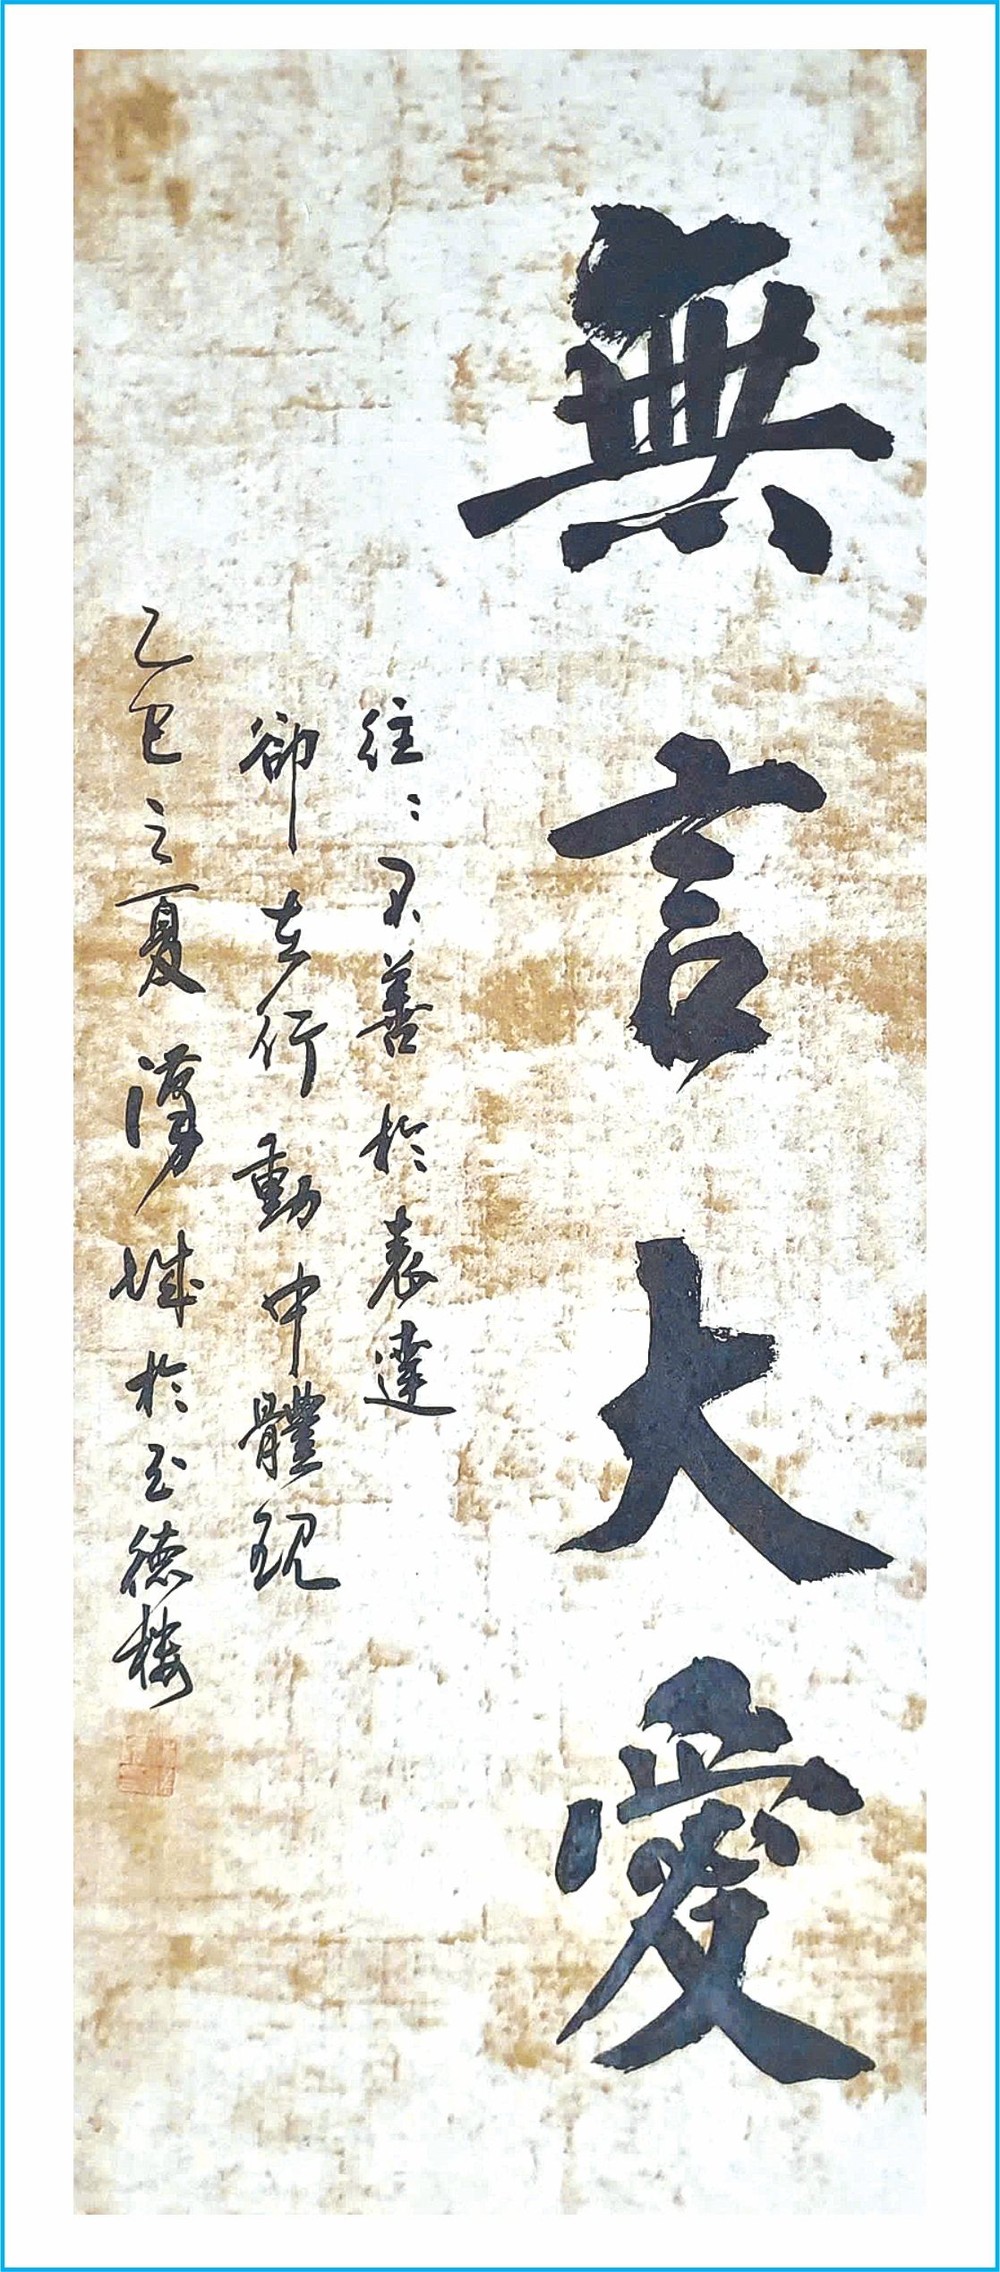 無言大愛
往〻不善於表達
卻在行動中體現
乙巳之夏漢城於玉德樓